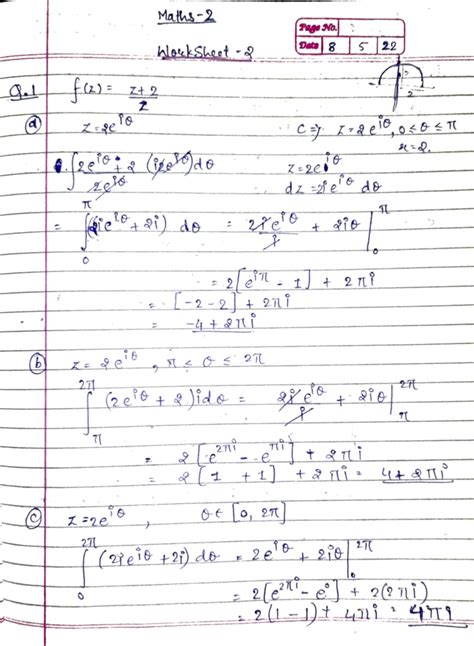 Maths-2
Page No.
WorkSheet-2
Date 8 5 22
Q.1 f(z) = z+2 / z
(a) z=2e^{iθ} C => z=2e^{iθ}, 0≤θ≤π
r=2.
∫ 2e^{iθ}+2 / 2e^{iθ} (2ie^{iθ})dθ z=2e^{iθ}
dz=2ie^{iθ} dθ
= ∫_0^π (2ie^{iθ}+2i) dθ = 2ie^{iθ}/i + 2iθ |_0^π
= 2[e^{iπ} - 1] + 2πi
= [-2-2] + 2πi
= -4+2πi
(b) z=2e^{iθ}, π≤θ≤2π
∫_π^{2π} (2e^{iθ}+2)idθ = 2ie^{iθ}/i + 2iθ |_π^{2π}
= 2[e^{2πi} - e^{πi}] + 2πi
= 2[1+1] + 2πi = 4+2πi
(c) z=2e^{iθ}, θ∈[0, 2π]
∫_0^{2π} (2ie^{iθ}+2i)dθ = 2e^{iθ} + 2iθ |_0^{2π}
= 2[e^{2πi} - e^0] + 2(2πi)
= 2(1-1) + 4πi = 4πi